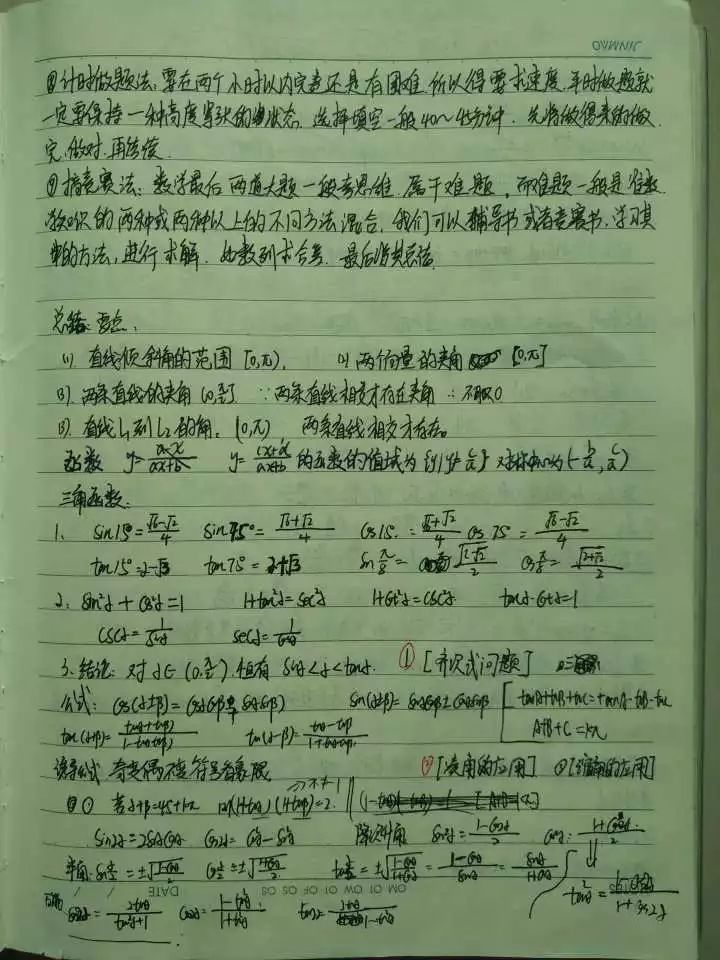 计时做题法：要在两个小时以内完套还是有困难，所以得要求速度，平时做题就
一定要保持一种高度紧张的状态，选择填空一般40～45分钟，先将做得来的做
完，做对，再继续
⑨搞竞赛法：数学最后两道大题一般考思维，属于难题，而难题一般是
知识的两种或两种以上的不同方法混合，我们可以辅导书或者竞赛书，学习其
中的方法，进行求解，如数列求合等，最后归类总结
总结：要点：
(1). 直线倾斜角的范围 [0,π). (2) 两个向量的夹角 [0,π]
(3). 两条直线的夹角 (0,π/2] ∵两条直线相交才存在夹角 ∴不取0
直线l₁到l₂的角：(0,π) 两条直线相交才存在。
函数 y= y=(cx+d)/(ax+b) 的函数的值域为{y|y≠c/a} 对称中心为(-b/a, c/a)
三角函数：
1. sin15°=(√6-√2)/4 sin75°=(√6+√2)/4 cos15°=(√6+√2)/4 cos75°=(√6-√2)/4
tan15°=2-√3 tan75°=2+√3 sinπ/8=√(2-√2)/2 cosπ/8=√(2+√2)/2
2. sin²α+cos²α=1 1+tan²α=sec²α 1+cot²α=csc²α tanα·cotα=1
cscα=1/sinα secα=1/cosα
3. 结论：对α∈(0,π/2).恒有 sinα<α<tanα. ① [齐次式问题]
公式：cos(α±β)=cosαcosβ∓sinαsinβ sin(α±β)=sinαcosβ±cosαsinβ [tanA+tanB+tanC=tanA·tanB·tanC
A+B+C=kπ
tan(α+β)=(tanα+tanβ)/(1-tanαtanβ) tan(α-β)=(tanα-tanβ)/(1+tanαtanβ)
诱导公式 奇变偶不变 符号看象限 ② [凑角的应用] [的应用]
① 若α+β=45°+kπ (1+tanα)(1+tanβ)=2.
sin2α=2sinαcosα cos2α=cos²α-sin²α 降次升角 sin²α=(1-cos2α)/2 cos²α=(1+cos2α)/2
半角：sinα/2=±√((1-cosα)/2) cosα/2=±√((1+cosα)/2) tanα/2=±√((1-cosα)/(1+cosα))=(1-cosα)/sinα=sinα/(1+cosα)
tan²α=(1-cos2α)/(1+cos2α)
sin2α=2tanα/(tan²α+1) cos2α=(1-tan²α)/(1+tan²α) tan2α=2tanα/(1-tan²α)
DATE